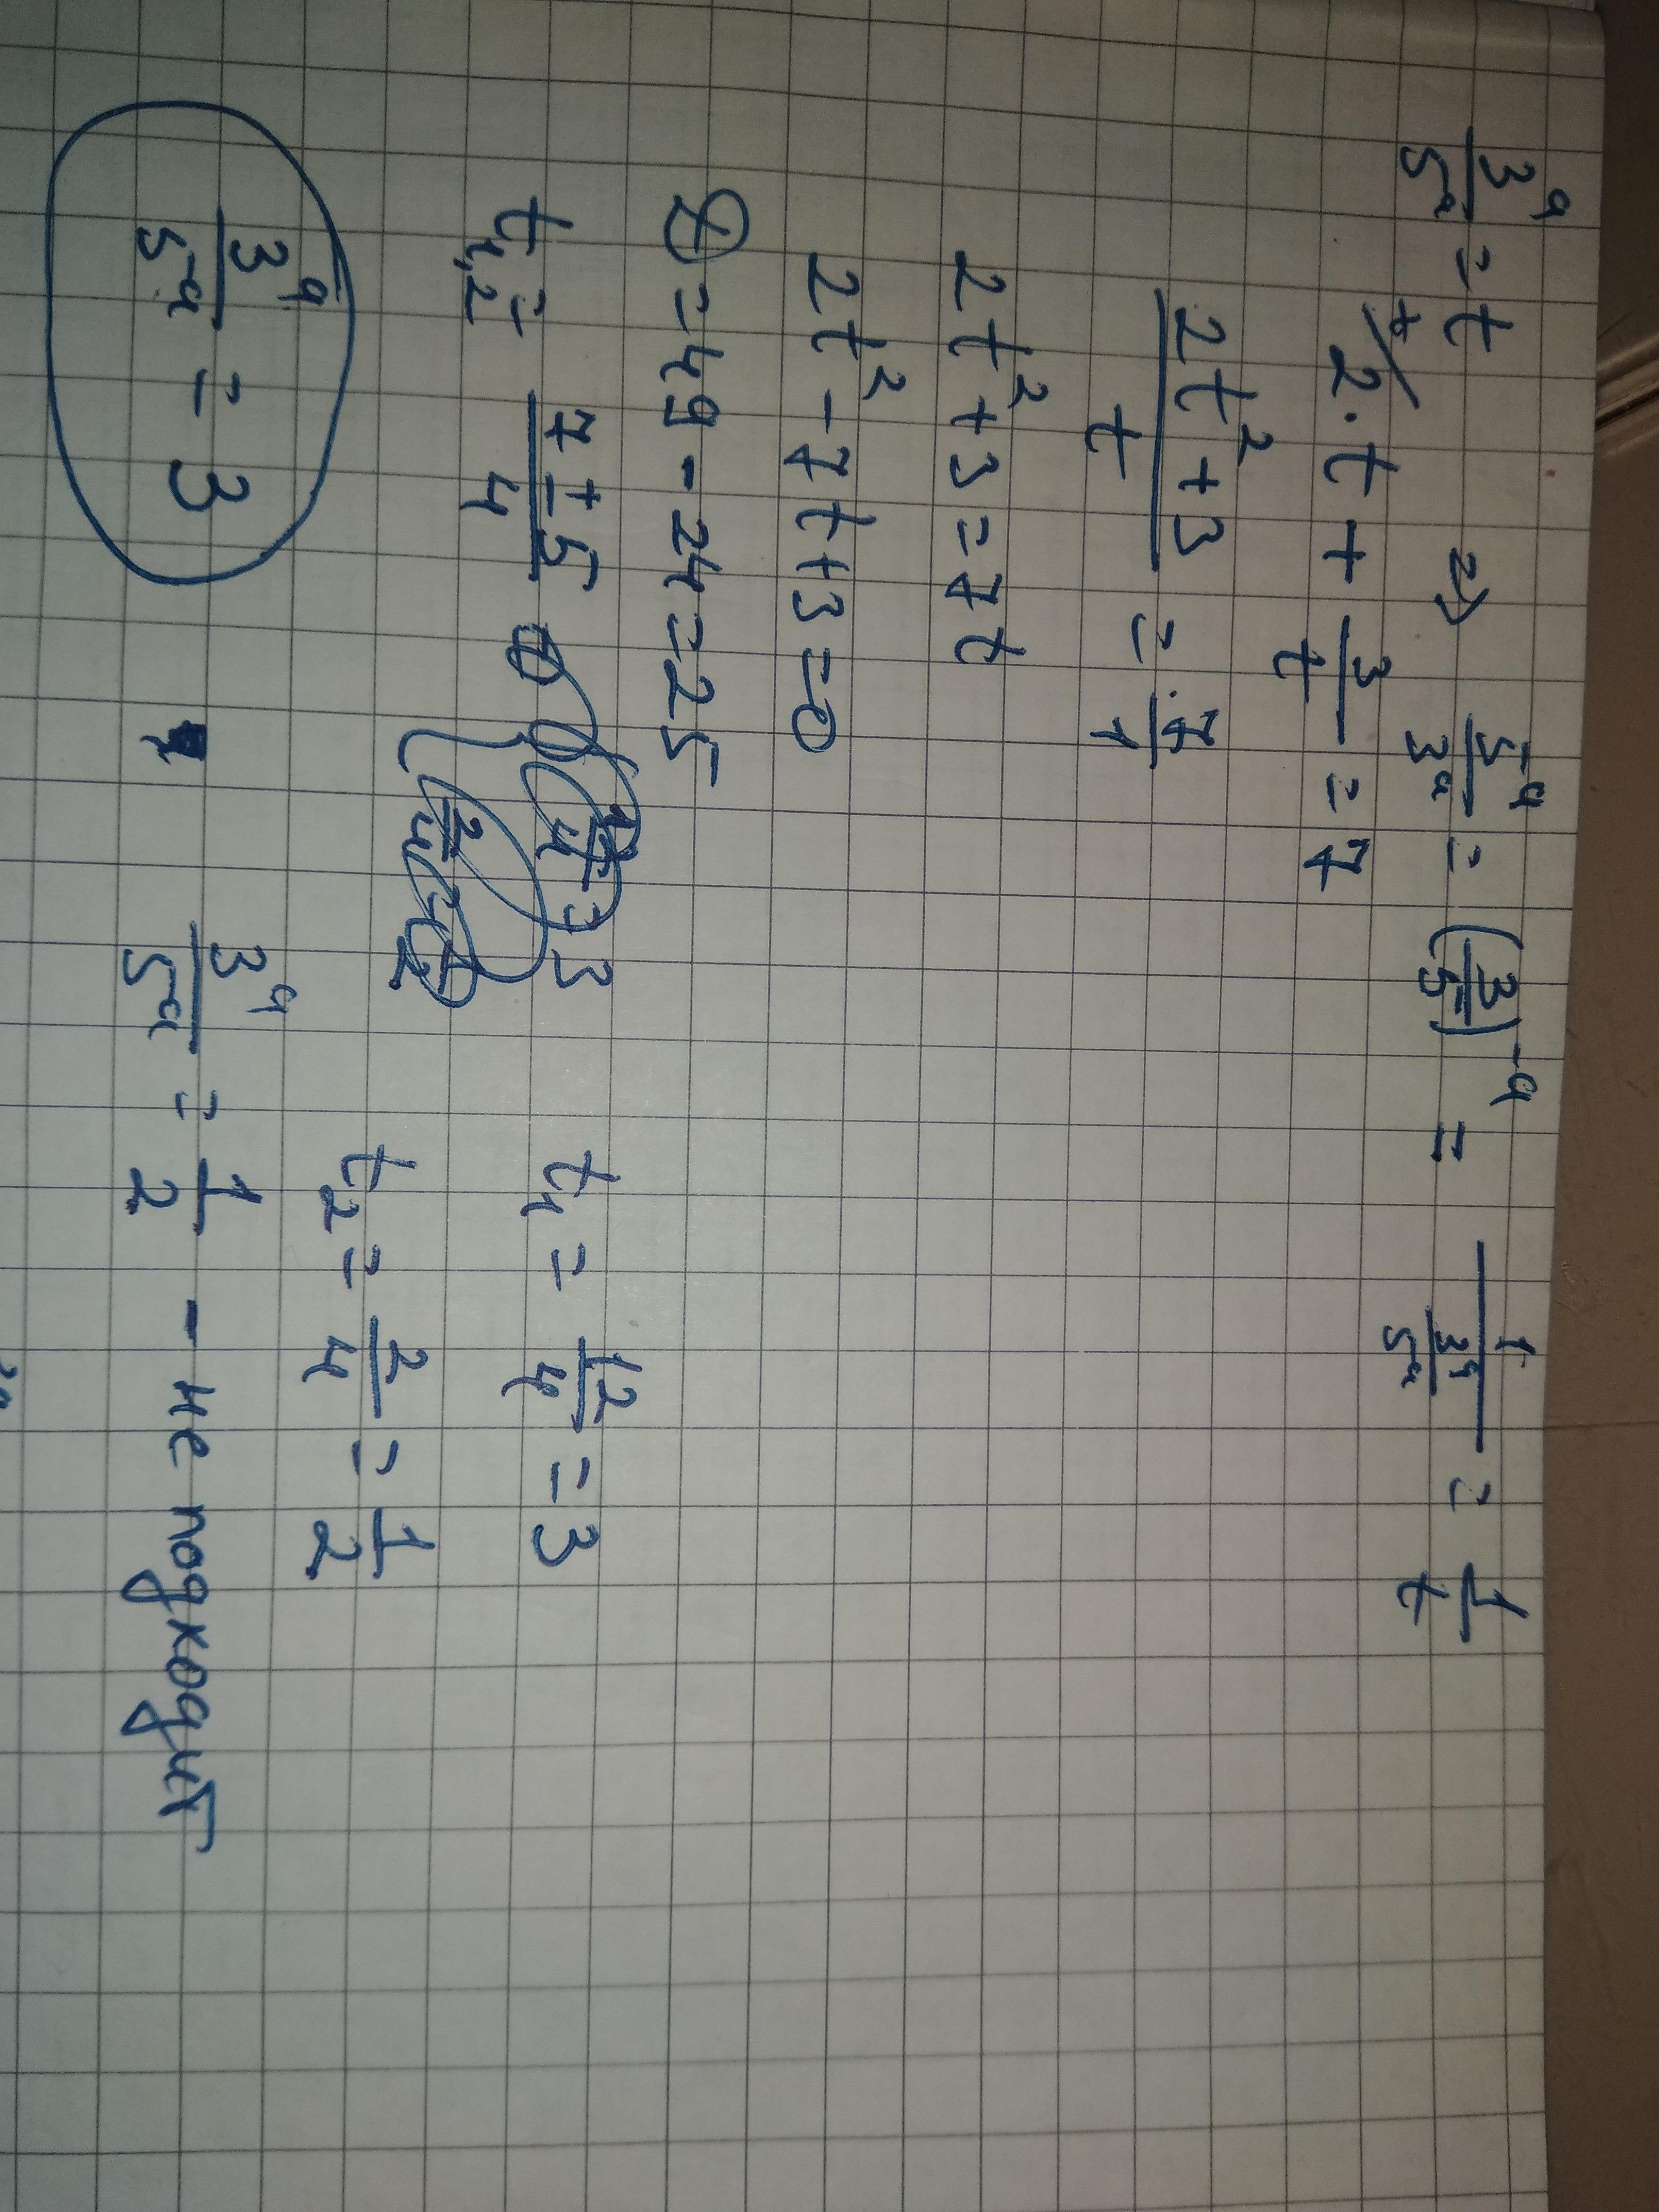 3^a/5^a = t => 5^a/3^a = (3/5)^-a = 1/(3^a/5^a) = 1/t
t/ 2·t + 3/t = 7
(2t²+3)/t = 7/1
2t²+3=7t
2t²-7t+3=0
D=49-24=25
t1,2 = (7±5)/4
t1 = 12/4 = 3
t2 = 2/4 = 1/2
3^a/5^a = 3
3^a/5^a = 1/2 - не подходит